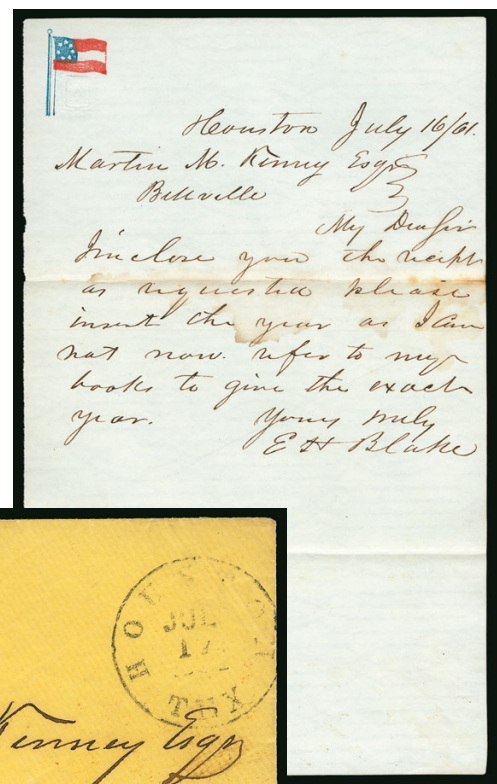 Houston July 16/61.
Martin M. Kenney Esqr
Bellville
My Dear Sir
I inclose you the receipt
as requested please
insert the year as I can
not now refer to my
books to give the exact
year. Yours truly
E H Blake
HOUSTON
JUL
17
TEX
Kenney Esqr